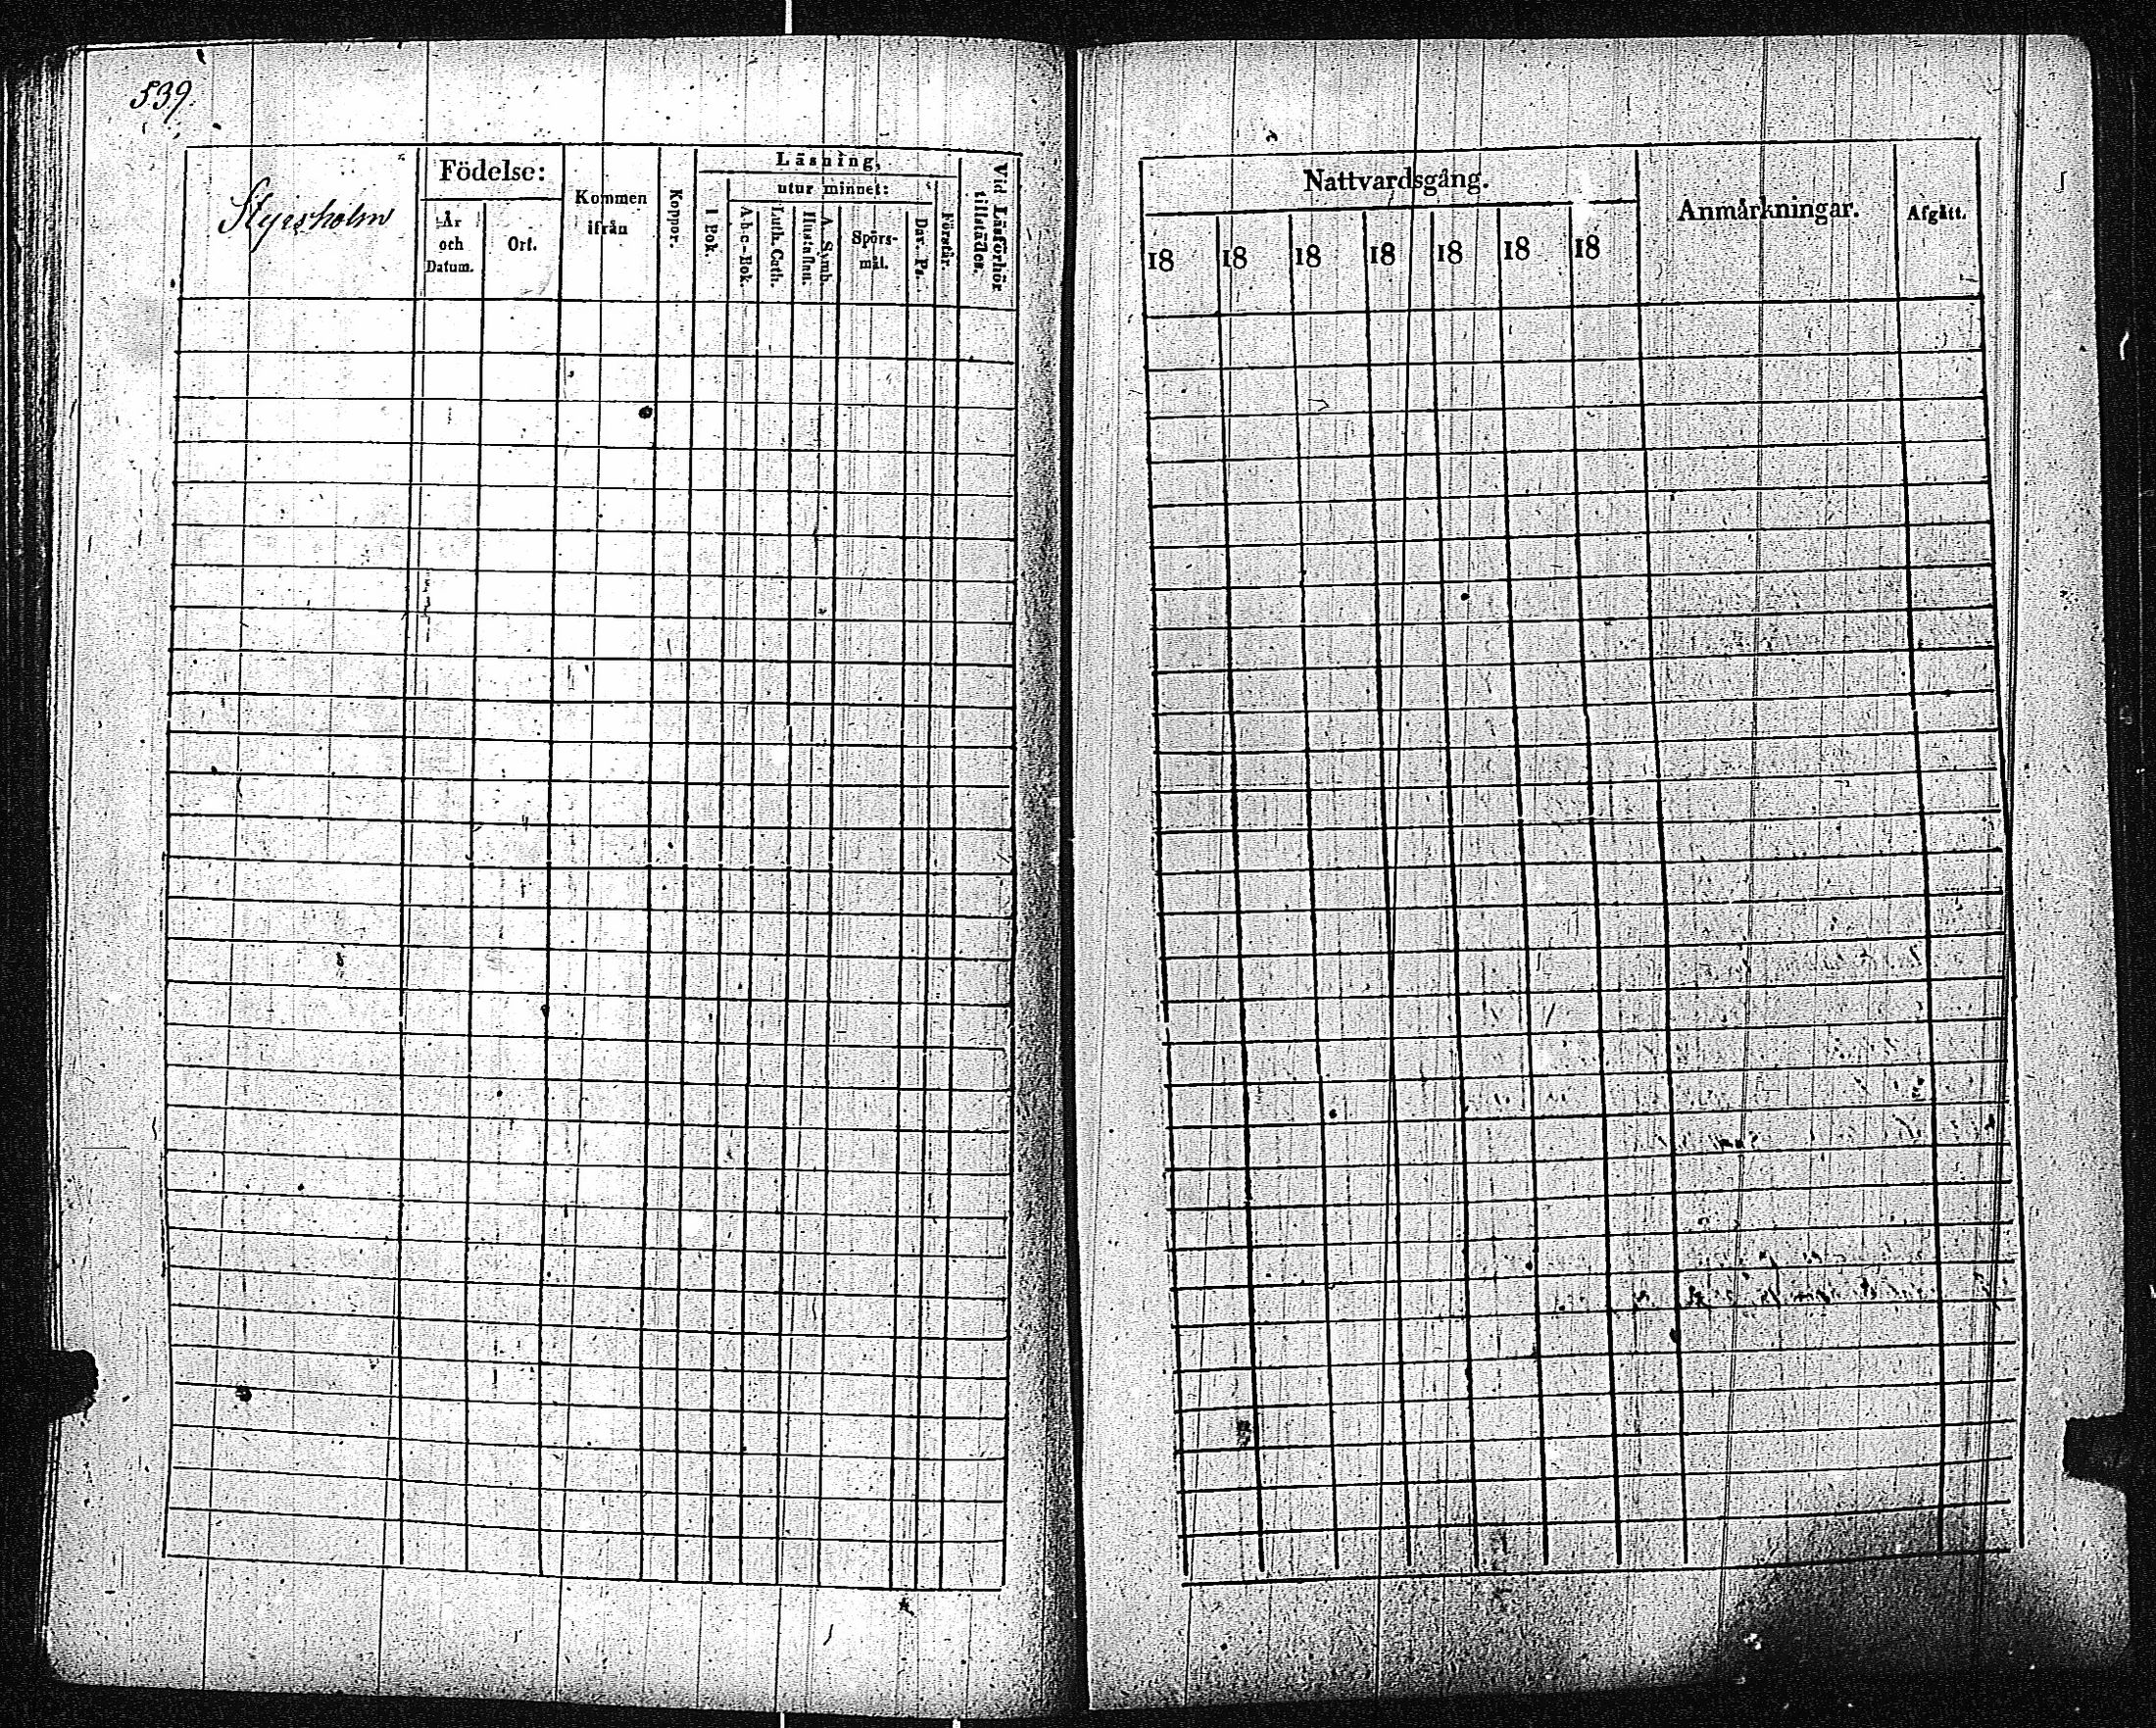 539.
Styrsholm
Födelse:
År
och
Datum.
Ort.
Kommen
ifrån
Koppor.
Läsning,
utur minnet:
I Bok.
A-b-c-Bok.
Luth. Cath.
A. Symb.
Hustaflan.
Spörs-
mål.
Dav. Ps.
Förstår.
Vid Läsförhör
tillstädes.
Nattvardsgång.
18 18 18 18 18 18 18
Anmärkningar.
Afgått.